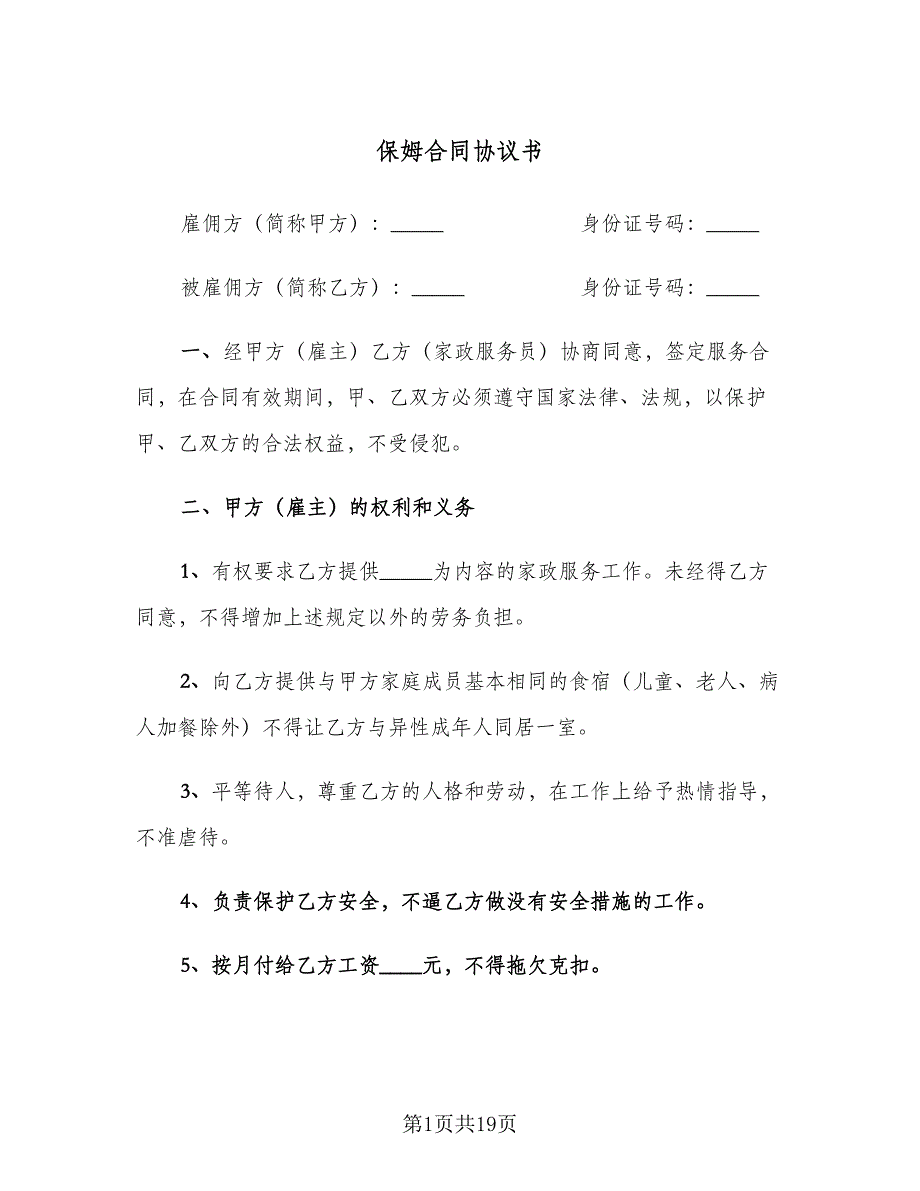 保姆合同协议书
雇佣方（简称甲方）：_____ 身份证号码：_____
被雇佣方（简称乙方）：_____ 身份证号码：_____
一、经甲方（雇主）乙方（家政服务员）协商同意，签定服务合
同，在合同有效期间，甲、乙双方必须遵守国家法律、法规，以保护
甲、乙双方的合法权益，不受侵犯。
二、甲方（雇主）的权利和义务
1、有权要求乙方提供_____为内容的家政服务工作。未经得乙方
同意，不得增加上述规定以外的劳务负担。
2、向乙方提供与甲方家庭成员基本相同的食宿（儿童、老人、病
人加餐除外）不得让乙方与异性成年人同居一室。
3、平等待人，尊重乙方的人格和劳动，在工作上给予热情指导，
不准虐待。
4、负责保护乙方安全，不逼乙方做没有安全措施的工作。
5、按月付给乙方工资____元，不得拖欠克扣。
第1页共19页